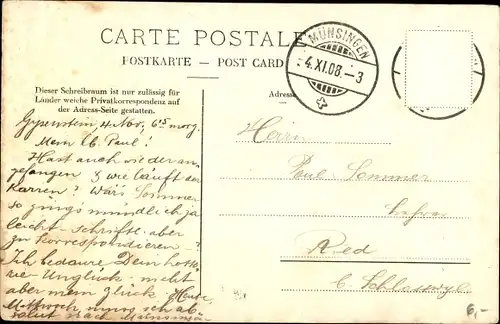 CARTE POSTALE
POSTKARTE — POST CARD
MÜNSINGEN
4.XI.08.–3
Dieser Schreibraum ist nur zulässig für
Länder welche Privatkorrespondenz auf
der Adress-Seite gestatten.
Adresse
4. Nov., 6⁴⁵ morg.
Mein lb. Paul!
Hast auch wieder an-
gefangen & wie läuft der
Karren? Wär's Sommer
so ging's mündlich ja
leicht - schriftl. aber
zu korrespondieren - ?
Ich bedaure Dein
Unglück - nicht
aber mein Glück. Heute
Mittwoch muss ich
nach Münsingen
Herrn
Paul Sommer
Ried
b. Schlosswyl
6,-